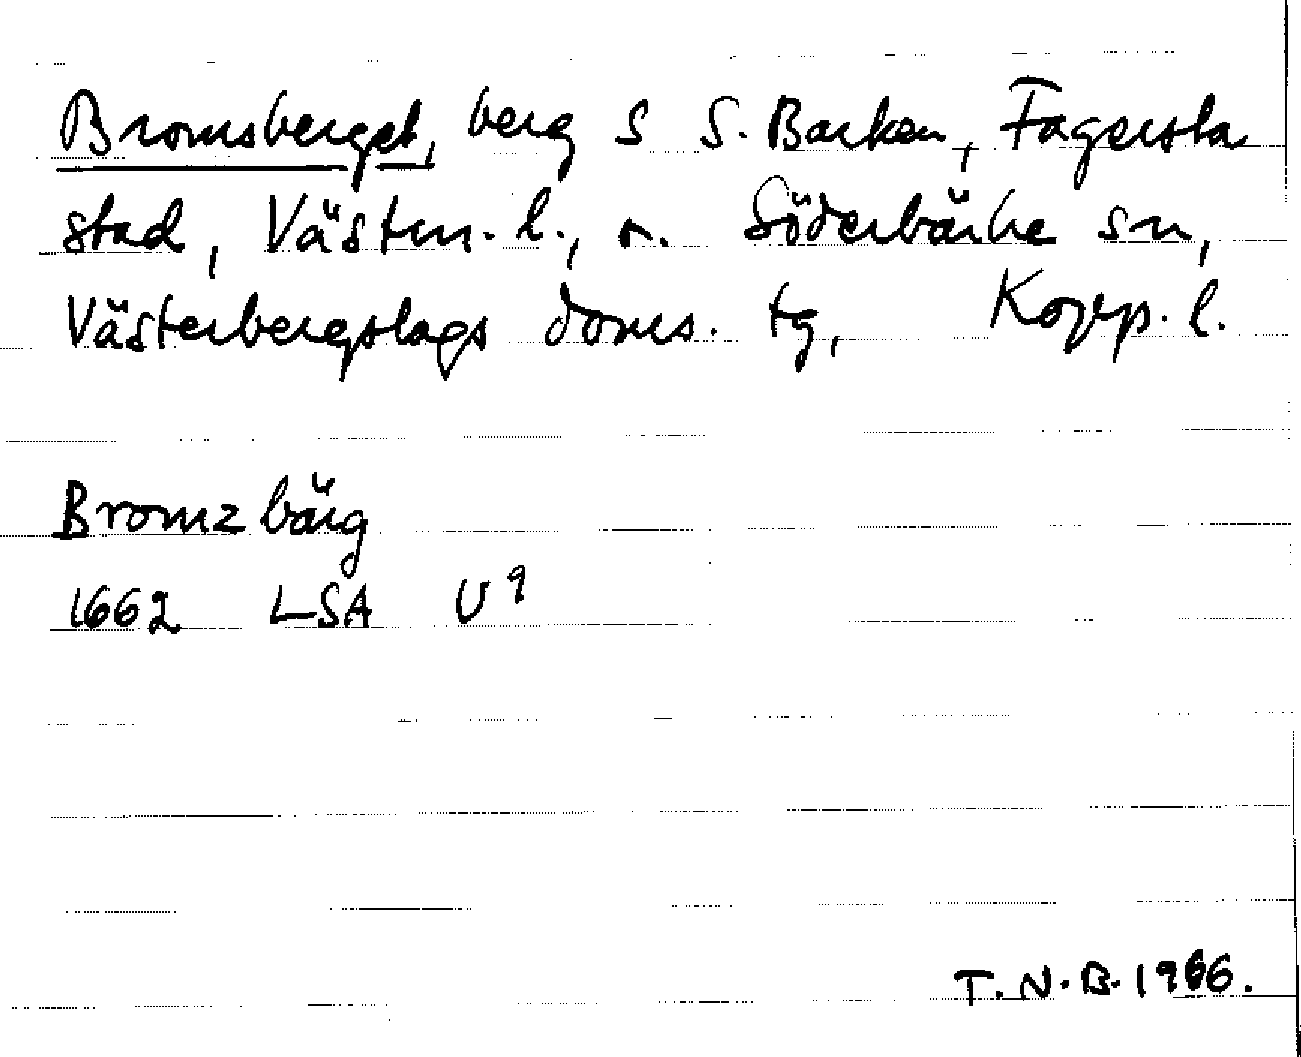 Bromsberget, berg S S. Barken, Fagersta
stad, Västm. l., o. Söderbärke sn,
Västerbergslags doms. tg, Kopp. l.
Bromzbärg
1662 LSA U 9
T.N.B. 1966.